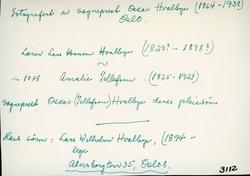 Fotografert av sogneprest Oscar Hvalbye (1864-1938)
Oslo.
Lars Hansen Hvalbye (1829 - 1898)
~ 1898 Amalie Tellefsen (1835-1928)
sogneprest Oscar (Tellefsen) Hvalbye deres pleiesønn
Hans sønn: Lars Wilhelm Hvalbye, 1894 -
lege
Akersborgtun 35, Oslo 8.
3112